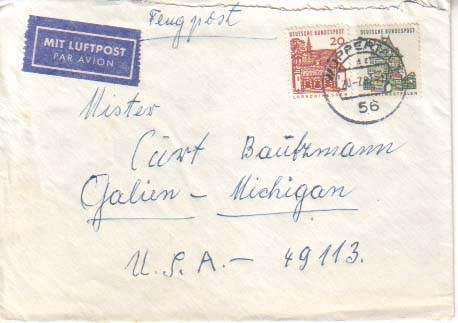 Flugpost
MIT LUFTPOST
PAR AVION
DEUTSCHE BUNDESPOST
20
DEUTSCHE BUNDESPOST
WUPPERTAL
56
Mister
Curt Bautzmann
Galien - Michigan
U.S.A. - 49113.